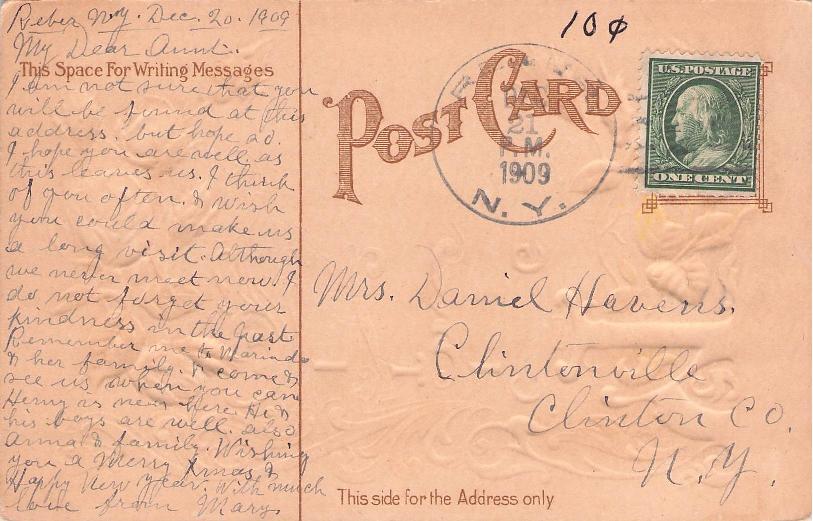 Reber N.Y. Dec. 20. 1909
My Dear Aunt.
This Space For Writing Messages
I am not sure that you
will be found at this
address. but hope so.
I hope you are well. as
this leaves us. I think
of you often. & wish
you could make us
a long visit. Although
we never meet now. I
do not forget your
kindness in the past
Remember me to Marinda
& her family. & come &
see us when you can
Henry is near here. He &
his boys are well. also
Anna & family. Wishing
you a Merry Xmas &
Happy New Year. With much
love from Mary.
10¢
POST CARD
DEC
21
P.M.
1909
N.Y.
U.S. POSTAGE
ONE CENT
Mrs. Daniel Havens.
Clintonville
Clinton Co.
N.Y.
This side for the Address only